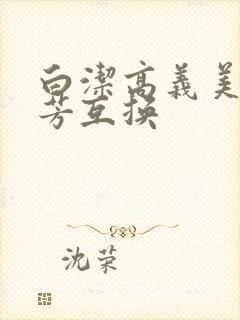 白潔高義美
芳互换
沈荣